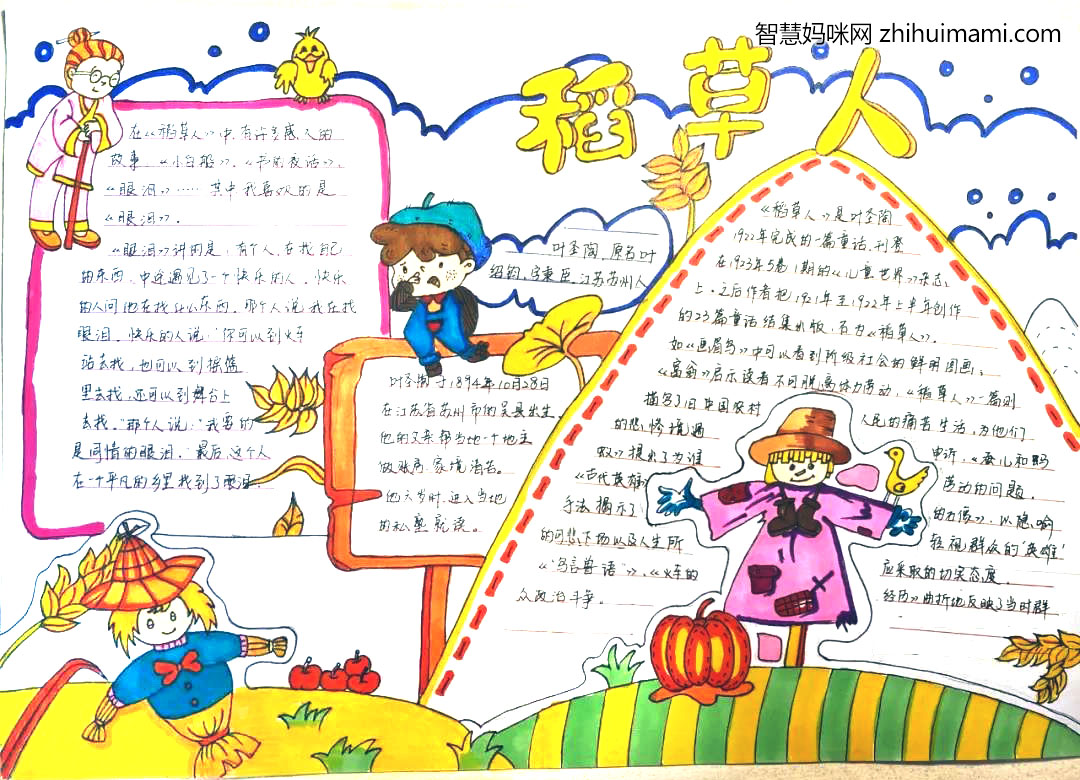 智慧妈咪网 zhihuimami.com
稻草人
在《稻草人》中,有许多感人的
故事,《小白船》、《芳儿的夜话》、
《眼泪》……其中我喜欢的是
《眼泪》.
《眼泪》讲的是,有个人,在找自己
的东西,中途遇见了一个快乐的人,快乐
的人问他在找什么东西,那个人说我在找
眼泪,快乐的人说:"你可以到火车
站去找,也可以到摇篮
里去找,还可以到舞台上
去找."那个人说:"我要的
是同情的眼泪,"最后,这个人
在一个平凡的乡里找到了
叶圣陶,原名叶
绍钧,字秉臣,江苏苏州人
叶圣陶于1894年10月28日
在江苏省苏州市的吴县出生,
他的父亲帮当地一个地主
做账房,家境清苦。
他六岁时,进入当地
的私塾就读。
《稻草人》是叶圣陶
1922年完成的一篇童话,刊登
在1923年5卷1期的《儿童世界》杂志
上,之后作者把1921年至1922年上半年创作
的23篇童话结集出版,名为《稻草人》.
如《画眉鸟》中可以看到阶级社会的鲜明图画;
《富翁》启示读者不可脱离体力劳动,《稻草人》一篇则
描写了旧中国农村 人民的痛苦生活,为他们
的悲惨境遇 申诉,《蚕儿和蚂
蚁》提出了为谁 劳动的问题.
《古代英雄 的石像》,以隐喻
手法揭示了 轻视群众的"英雄"
的可悲下场以及人生所 应采取的切实态度.
《"鸟言兽语"》,《火车的 经历》曲折地反映了当时群
众政治斗争。